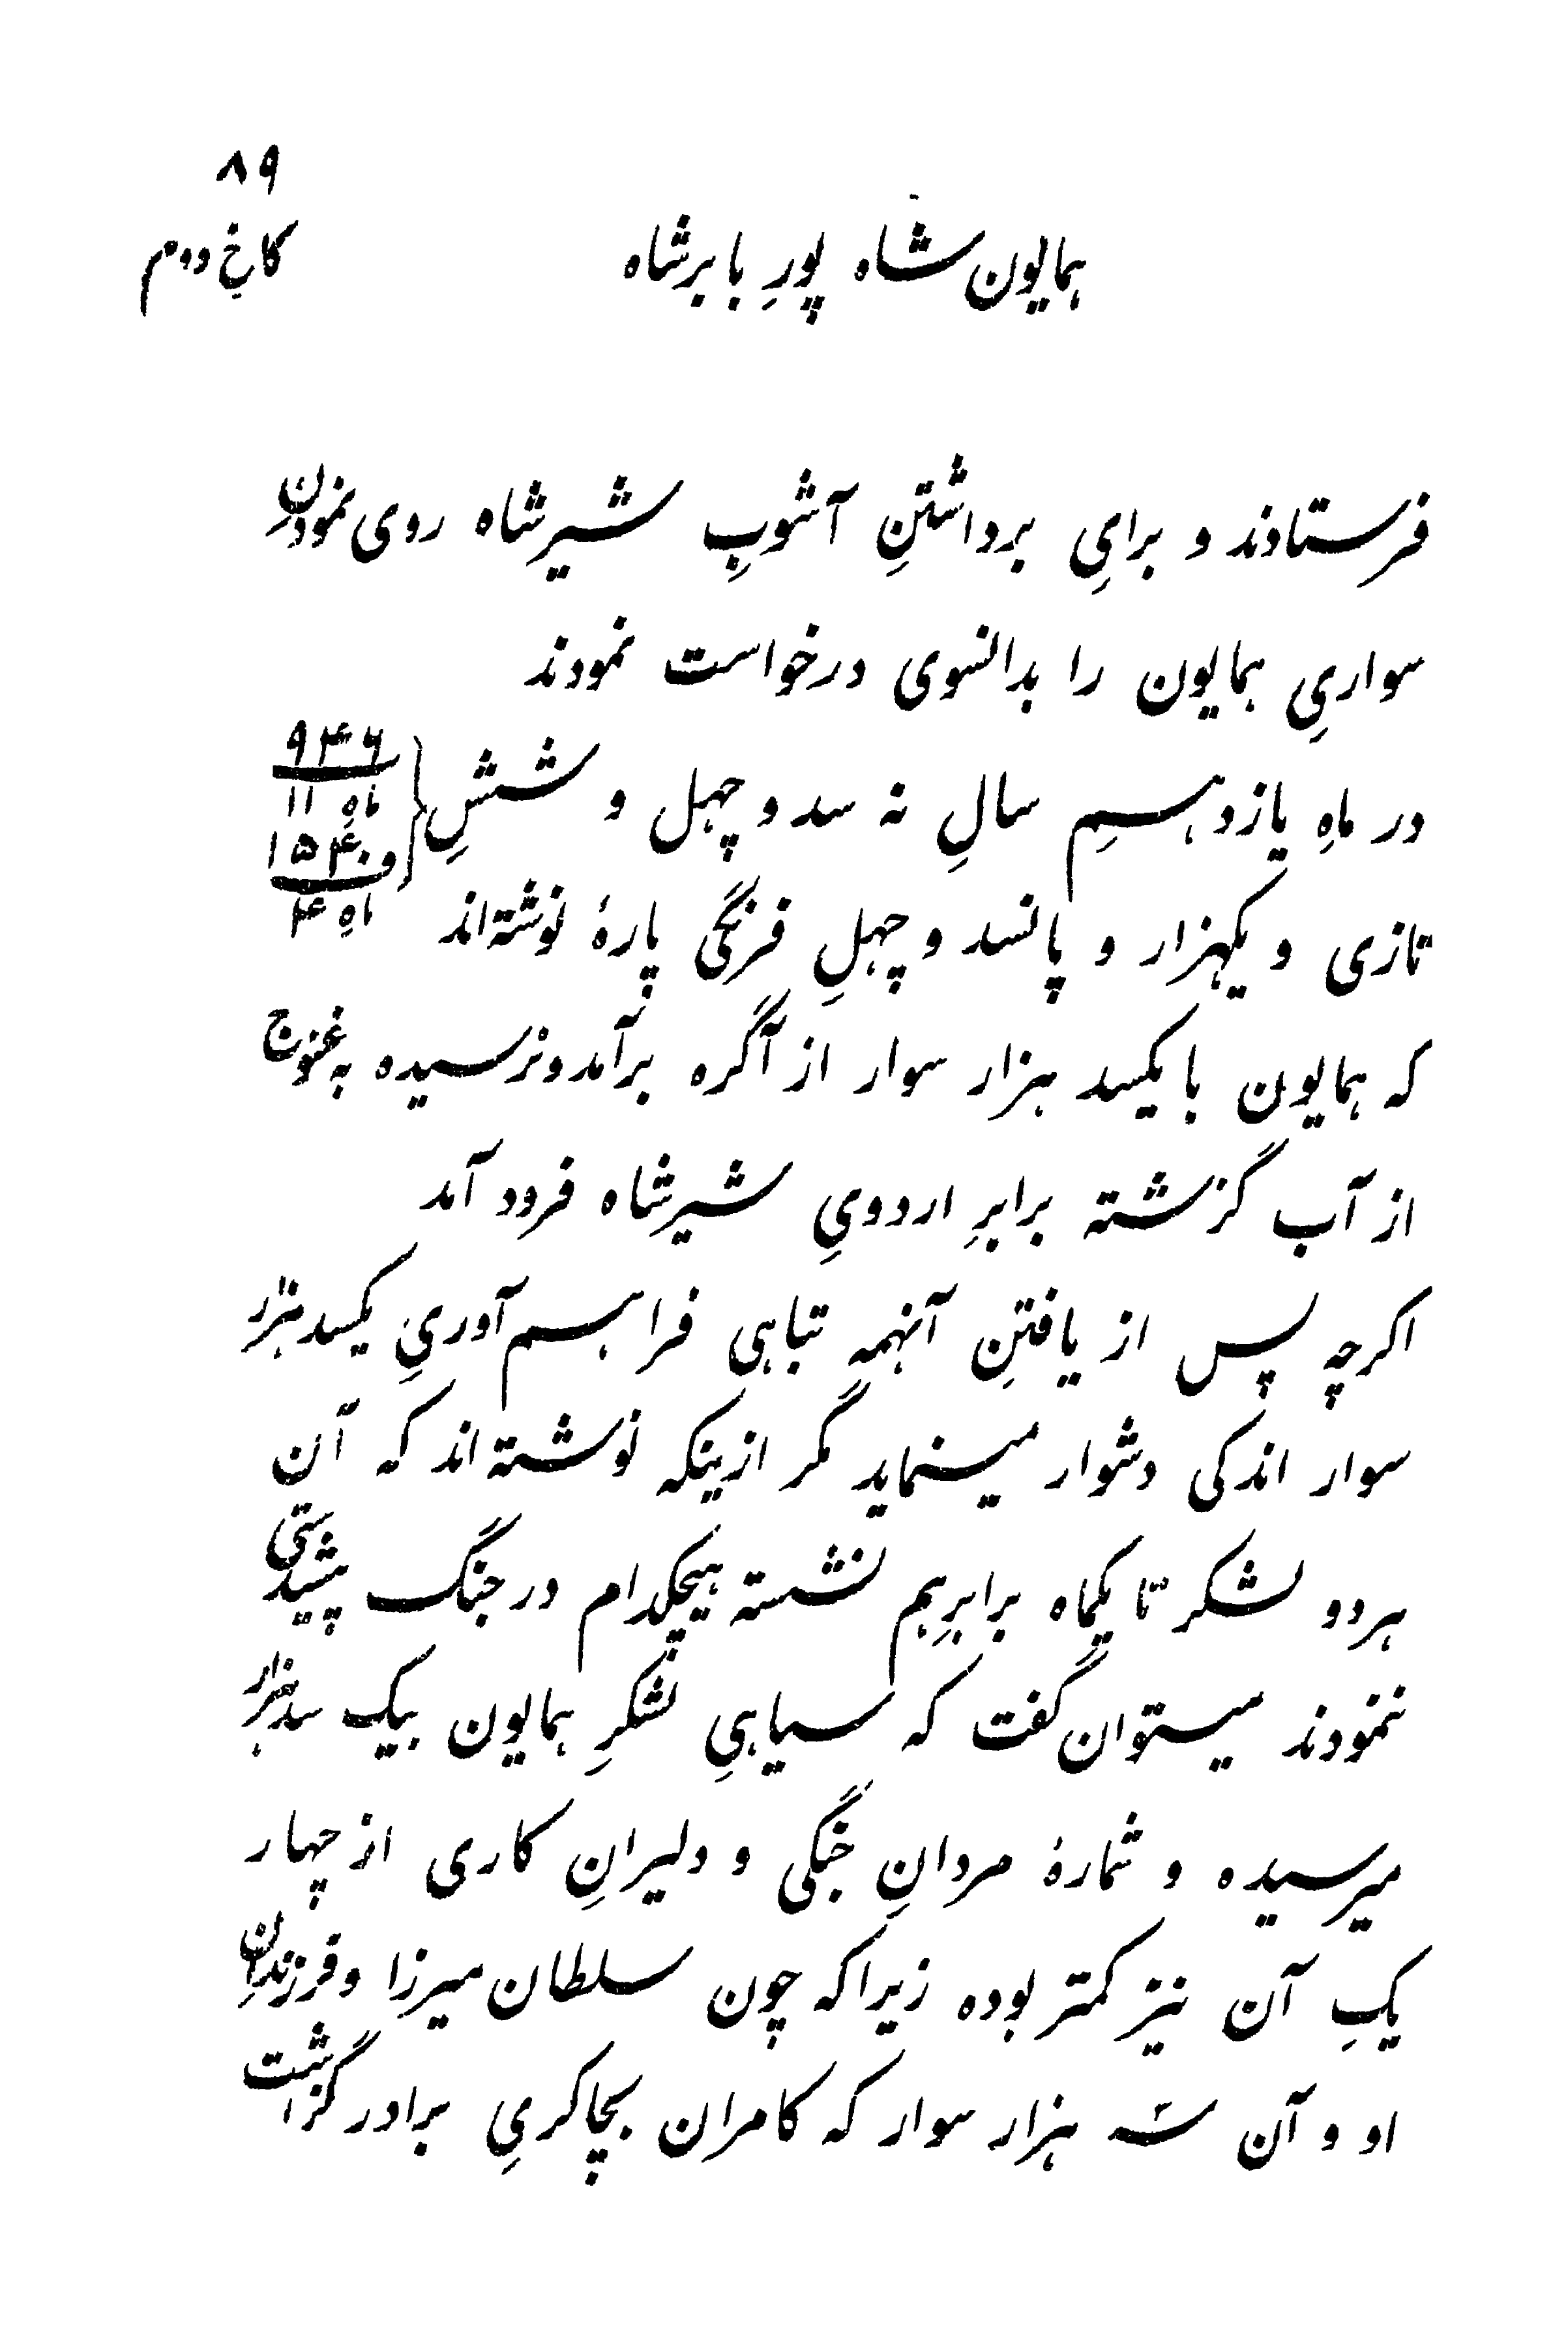 ۸۹
همایون شاه پورِ بابرشاه
کاخ دوم
فرستادند و برایِ برداشتنِ آشوبِ شیرشاه روی نمودنِ
سواریِ همایون را بدانسوی درخواست نمودند
در ماهِ یازدهمِ سالِ نه سد و چهل و ششِ
۹۴۶
ماهِ ۱۱
و ۱۵۴۰
ماهِ ۴
تازی و یکهزار و پانسد و چهلِ فرنگی پارهٔ نوشته‌اند
که همایون با یکسد هزار سوار از آگره برآمد و نرسیده به غنوج
از آب گزشته برابرِ اردویِ شیرشاه فرود آمد
اگرچه پس از یافتنِ آنهمه تباهی فراهم آوریِ یکسد هزار
سوار اندکی دشوار مینماید مگر ازینکه نوشته‌اند که آن
هر دو لشکر تا یکماه برابرِ هم نشسته هیچکدام در جنگ پیشدستی
ننمودند میتوان گفت که سیاهیِ لشکرِ همایون بیک سد هزار
میرسیده و شمارهٔ مردانِ جنگی و دلیرانِ کاری از چهار
یکِ آن نیز کمتر بوده زیرا که چون سلطان میرزا و فرزندانِ
او و آن سه هزار سوار که کامران بچاکریِ برادر گزاشت